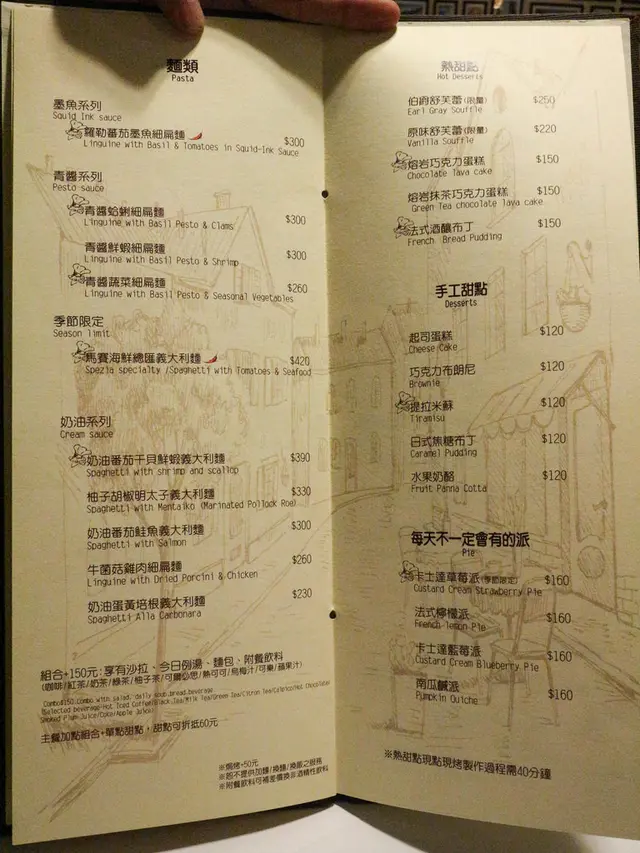 麵類
Pasta
墨魚系列
Squid Ink sauce
羅勒番茄墨魚細扁麵 $300
Linguine with Basil & Tomatoes in Squid-Ink Sauce
青醬系列
Pesto sauce
青醬蛤蜊細扁麵 $300
Linguine with Basil Pesto & Clams
青醬鮮蝦細扁麵 $300
Linguine with Basil Pesto & Shrimp
青醬蔬菜細扁麵 $260
Linguine with Basil Pesto & Seasonal Vegetables
季節限定
Season limit
馬賽海鮮總匯義大利麵 $420
Spezia specialty /Spaghetti with Tomatoes & Seafood
奶油系列
Cream sauce
奶油番茄干貝鮮蝦義大利麵 $390
Spaghetti with shrimp and scallop
柚子胡椒明太子義大利麵 $330
Spaghetti with Mentaiko (Marinated Pollock Roe)
奶油番茄鮭魚義大利麵 $300
Spaghetti with Salmon
牛菌菇雞肉細扁麵 $260
Linguine with Dried Porcini & Chicken
奶油蛋黃培根義大利麵 $230
Spaghetti Alla Carbonara
組合+150元: 享有沙拉、今日例湯、麵包、附餐飲料
(咖啡/紅茶/奶茶/綠茶/柚子茶/可爾必思/熱可可/烏梅汁/可樂/蘋果汁)
Combo$150.Combo with salad, daily soup,bread,beverage
(Selected beverage-Hot Iced Coffet/Black Tea/Milk Tea/Green Tea/Citron Tea/Calpico/Hot Chocolate/
Smoked Plum Juice/Coke/Apple Juice)
主餐加點組合+單點甜點，甜點可折抵60元
※焗烤+50元
※恕不提供加麵/換麵/換飯之服務
※附餐飲料可補差價換非酒精性飲料
熱甜點
Hot Desserts
伯爵舒芙蕾(限量) $250
Earl Gray Souffle
原味舒芙蕾(限量) $220
Vanilla Souffle
熔岩巧克力蛋糕 $150
Chocolate lava cake
熔岩抹茶巧克力蛋糕 $150
Green Tea chocolate lava cake
法式酒釀布丁 $150
French Bread Pudding
手工甜點
Desserts
起司蛋糕 $120
Cheese Cake
巧克力布朗尼 $120
Brownie
提拉米蘇 $120
Tiramisu
日式焦糖布丁 $120
Caramel Pudding
水果奶酪 $120
Fruit Panna Cotta
每天不一定會有的派
Pie
卡士達草莓派(季節限定) $160
Custard Cream Strawberry Pie
法式檸檬派 $160
French lemon Pie
卡士達藍莓派 $160
Custard Cream Blueberry Pie
南瓜鹹派 $160
Pumpkin Quiche
※熱甜點現點現烤製作過程需40分鐘